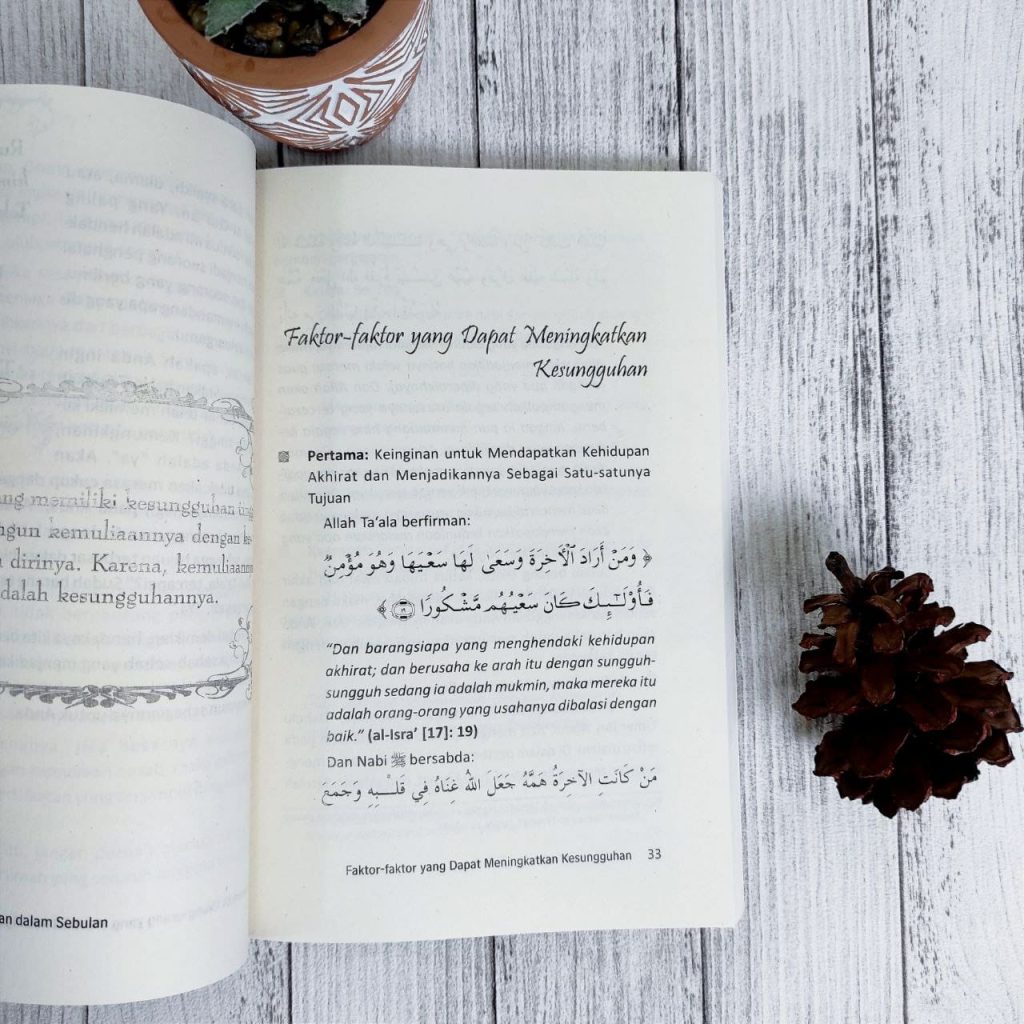 ang memiliki kesungguhan
ngun kemuliaannya dengan
dirinya. Karena, kemuliaannya
dalah kesungguhannya.
an dalam Sebulan
Faktor-faktor yang Dapat Meningkatkan
Kesungguhan
Pertama: Keinginan untuk Mendapatkan Kehidupan
Akhirat dan Menjadikannya Sebagai Satu-satunya
Tujuan
Allah Ta‘ala berfirman:
﴿ وَمَنْ أَرَادَ ٱلْأَخِرَةَ وَسَعَىٰ لَهَا سَعْيَهَا وَهُوَ مُؤْمِنٌ
فَأُو۟لَـٰٓئِكَ كَانَ سَعْيُهُم مَّشْكُورًا ۝١٩ ﴾
“Dan barangsiapa yang menghendaki kehidupan
akhirat; dan berusaha ke arah itu dengan sungguh-
sungguh sedang ia adalah mukmin, maka mereka itu
adalah orang-orang yang usahanya dibalasi dengan
baik.” (al-Isra’ [17]: 19)
Dan Nabi ﷺ bersabda:
مَنْ كَانَتِ الآخِرَةُ هَمَّهُ جَعَلَ اللهُ غِنَاهُ فِي قَلْـــبِهِ وَجَمَعَ
Faktor-faktor yang Dapat Meningkatkan Kesungguhan 33